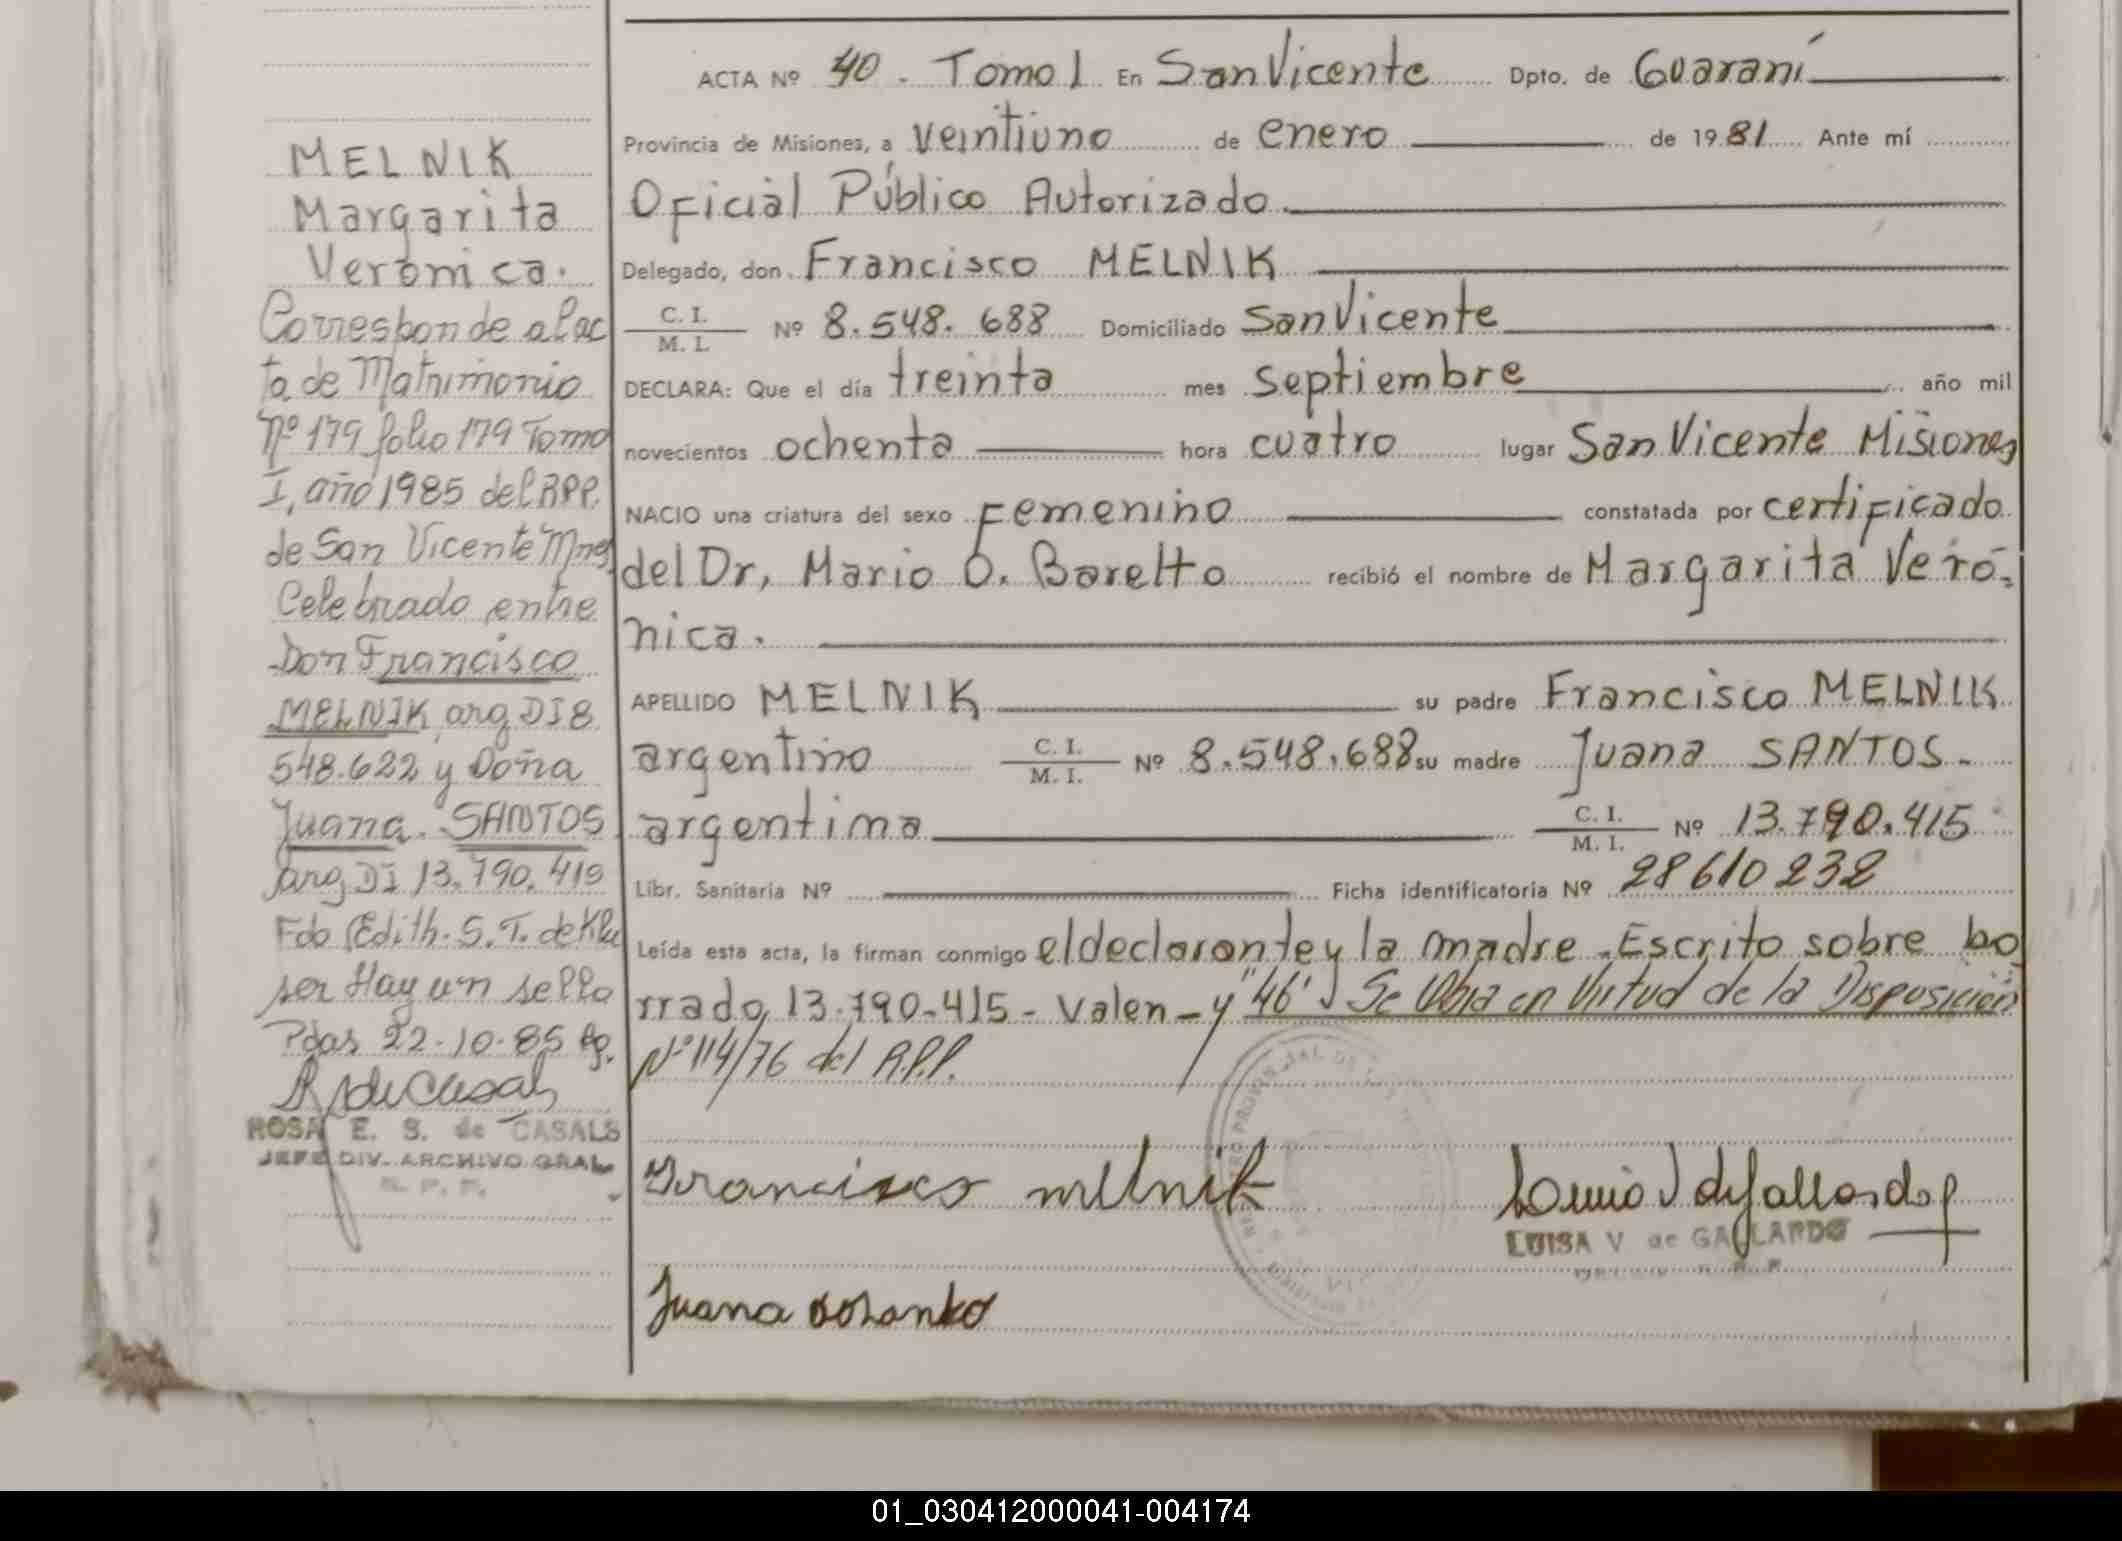 ACTA Nº 40. Tomo I En San Vicente Dpto. de Guaraní
Provincia de Misiones, a veintiuno de enero de 1981 Ante mí
Oficial Público Autorizado.
Delegado, don Francisco MELNIK
C. I.
M. I. Nº 8.548.688 Domiciliado San Vicente
DECLARA: Que el día treinta mes septiembre año mil
novecientos ochenta hora cuatro lugar San Vicente Misiones
NACIO una criatura del sexo Femenino constatada por certificado
del Dr, Mario O. Boretto recibió el nombre de Margarita Veró-
nica.
APELLIDO MELNIK su padre Francisco MELNIK
argentino C. I. M. I. Nº 8.548.688 su madre Juana SANTOS.
argentina C. I. M. I. Nº 13.790.415
Libr. Sanitaria Nº Ficha identificatoria Nº 28610232
Leída esta acta, la firman conmigo el declarante y la madre. Escrito sobre bo
rrado, 13.790.415 - Valen - y "46" Se Obra en Virtud de la Disposición
Nº 114/76 del R.P.P.
Francisco melnik
LUISA V de GALLARDO
Juana
MELNIK
Margarita
Verónica.
Corresponde al ac
ta de Matrimonio
Nº 179 folio 179 Tomo
I, año 1985 del RPP.
de San Vicente Mnes
Celebrado entre
Don Francisco
MELNIK arg DI 8
548.622 y Doña
Juana SANTOS
arg DI 13.790.419
Fdo Edith. S. T. de Klu
ser Hay un sello
Pdas 22-10-85
R S de Casals
ROSA E. S. de CASALS
JEFE DIV. ARCHIVO GRAL.
R. P. P.
01_030412000041-004174